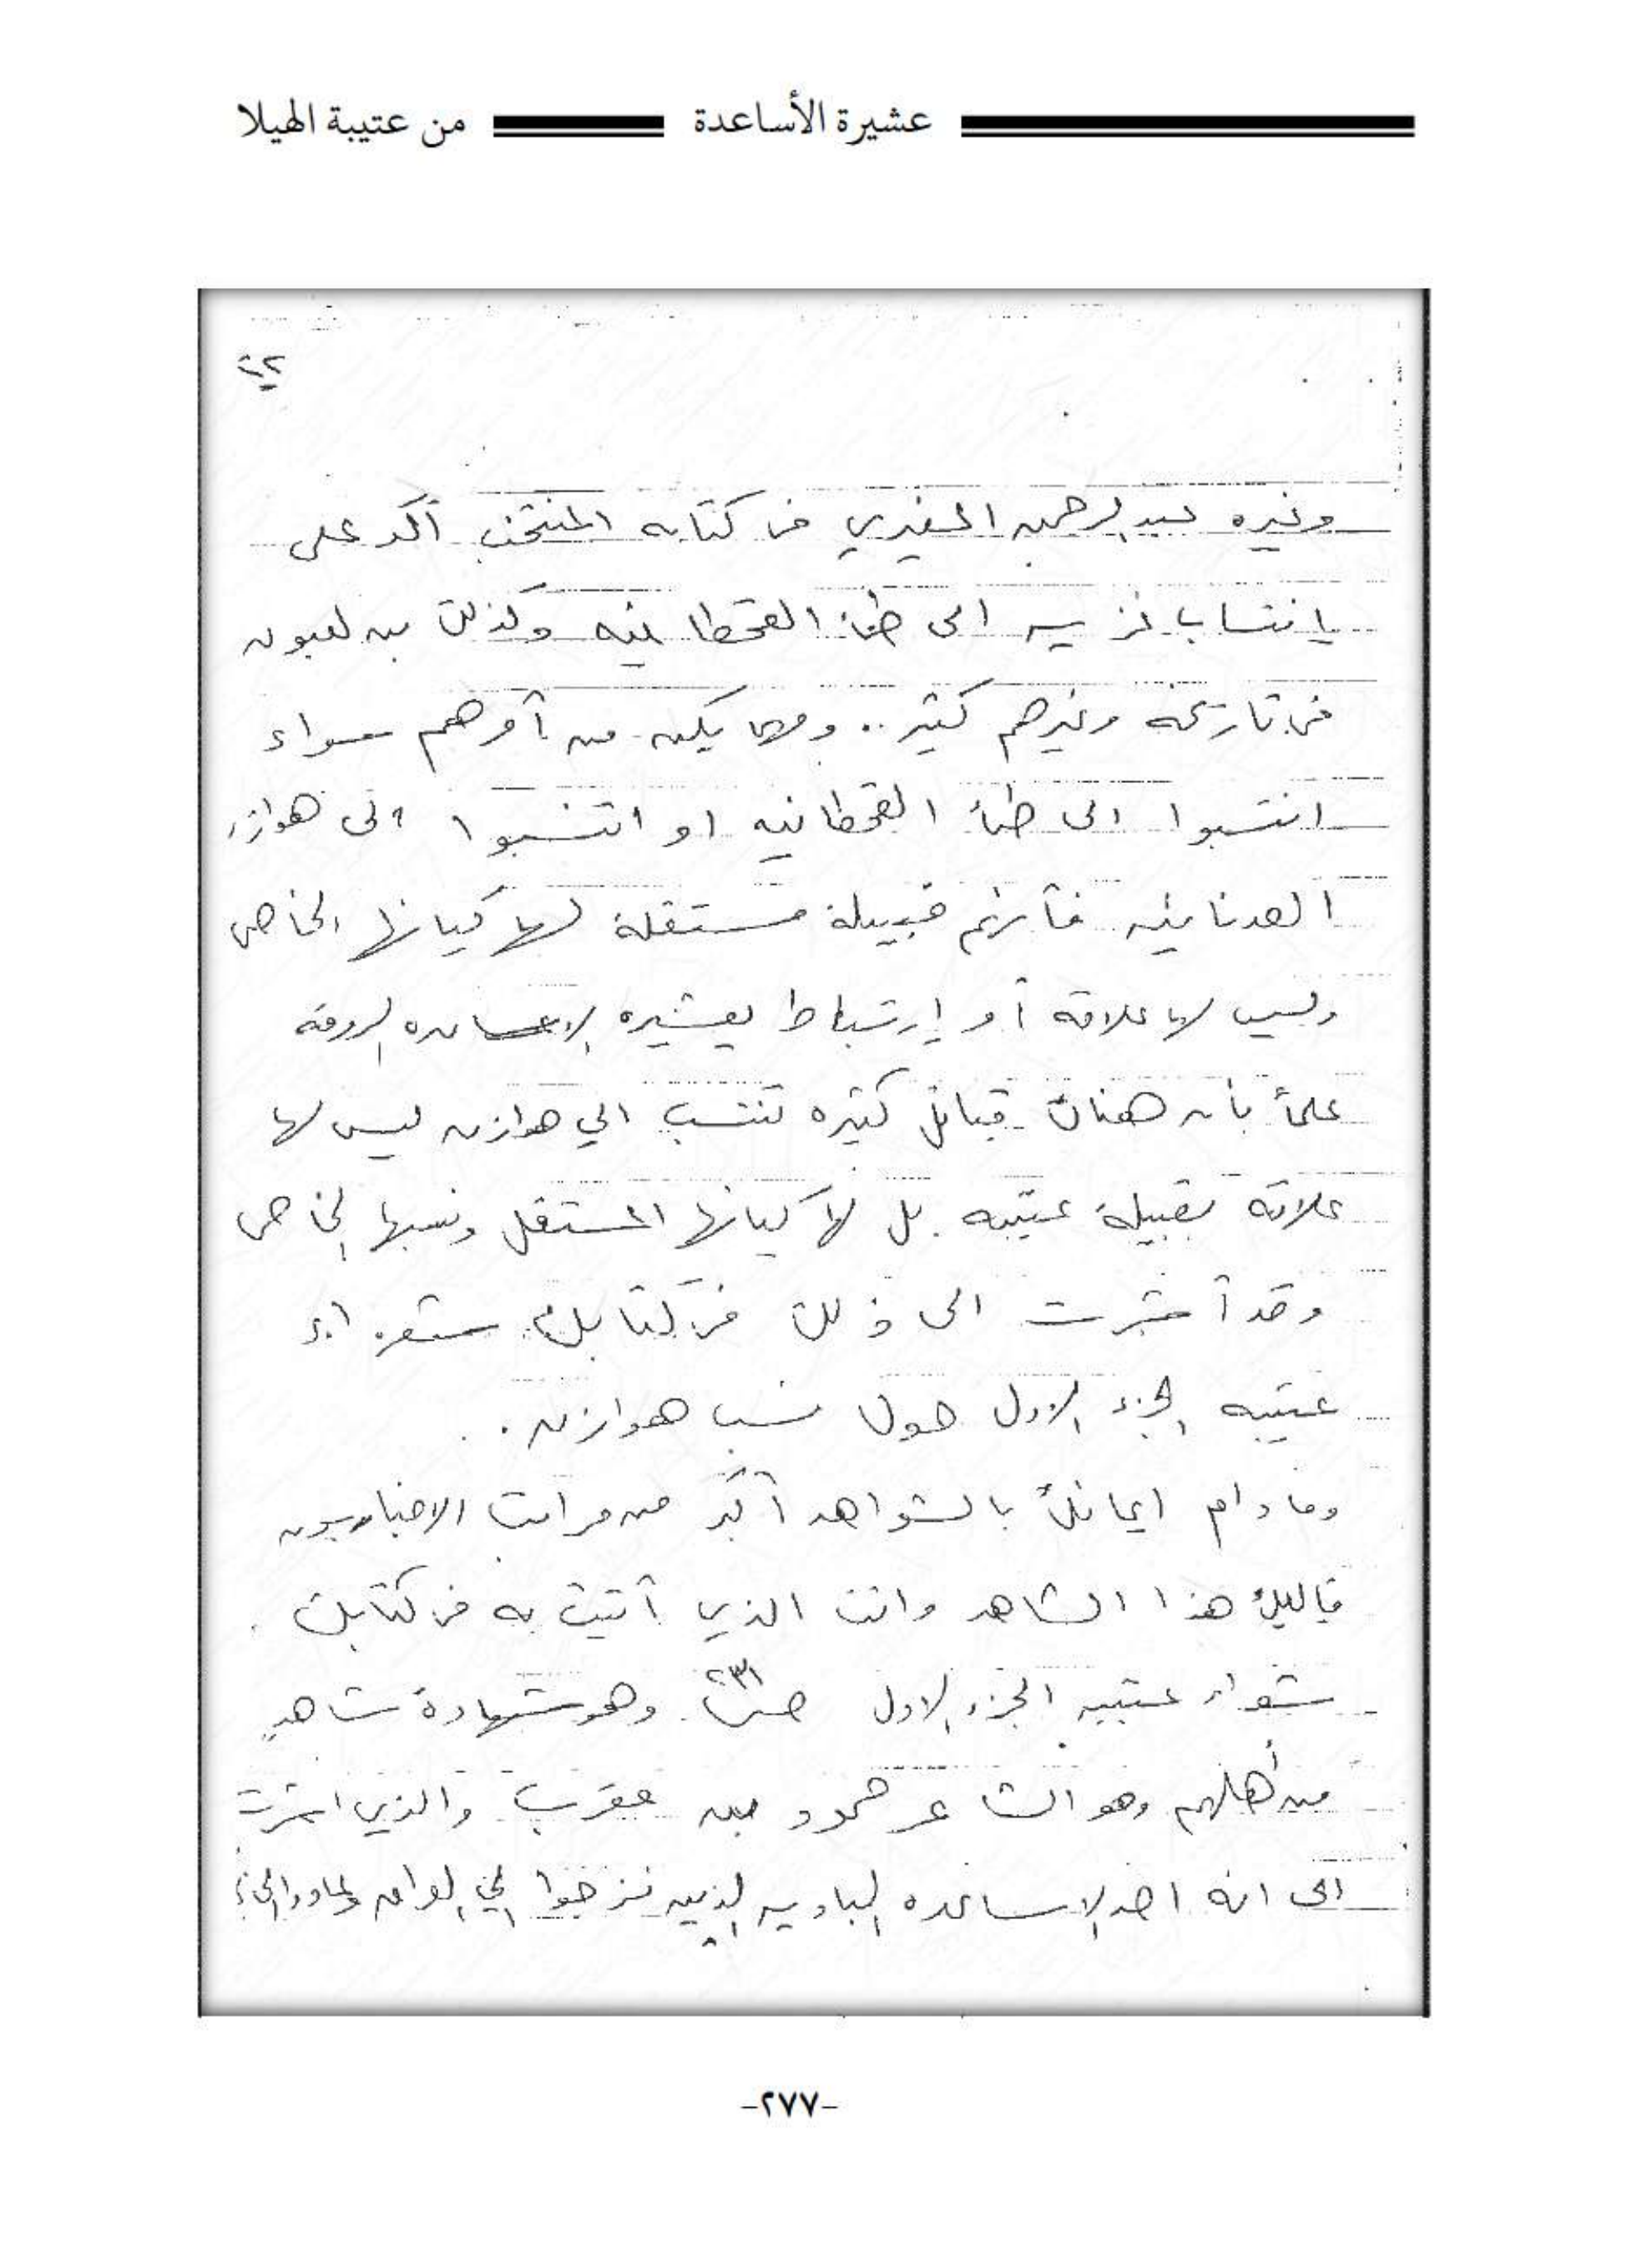 عشيرة الأساعدة من عتيبة الهيلا
وغيره عبد الرحمن المغيري في كتابه المنتخب أكد على
انتساب غزيه الى طئ القحطانيه وكذلك بن لعبون
في تاريخه وغيرهم كثير .. ومهما يكن من أمرهم سواء
انتسبوا الى طئ القحطانيه او انتسبوا الى هوازن
العدنانيه فأنهم قبيلة مستقلة لها كيانها الخاص
وليس لها علاقة أو إرتباط بعشيره الاساعده الروقه
علمأ بأن هناك قبائل كثيره تنتسب الي هوازن ليس لها
علاقه بقبيلة عتيبه بل لها كيانها المستقل ونسبها الخاص
وقد أشرت الى ذلك في كتابك شعراء
عتيبه الجزء الاول حول نسب هوازن .
وما دام ايمانك بالشواهد أكبر من مرات الاخباريون
فاليك هذا الشاهد وانت الذي أتيت به في كتابك
شعراء عتيبه الجزء الاول ص ٢٣١ وهو شهادة شاهدٍ
من أهلهم وهو الشاعر حمود بن عقرب والذي اشرت
الى انه احد الاساعده الباديه الذين نزحوا الي العراق
-٢٧٧-